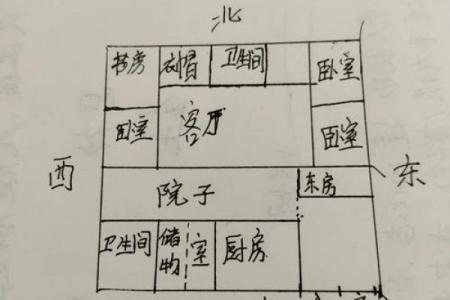 北
书房 衣帽 卫生间 卧室
卧室 客厅 卧室
西 东
院子 东房
卫生间 储物室 厨房